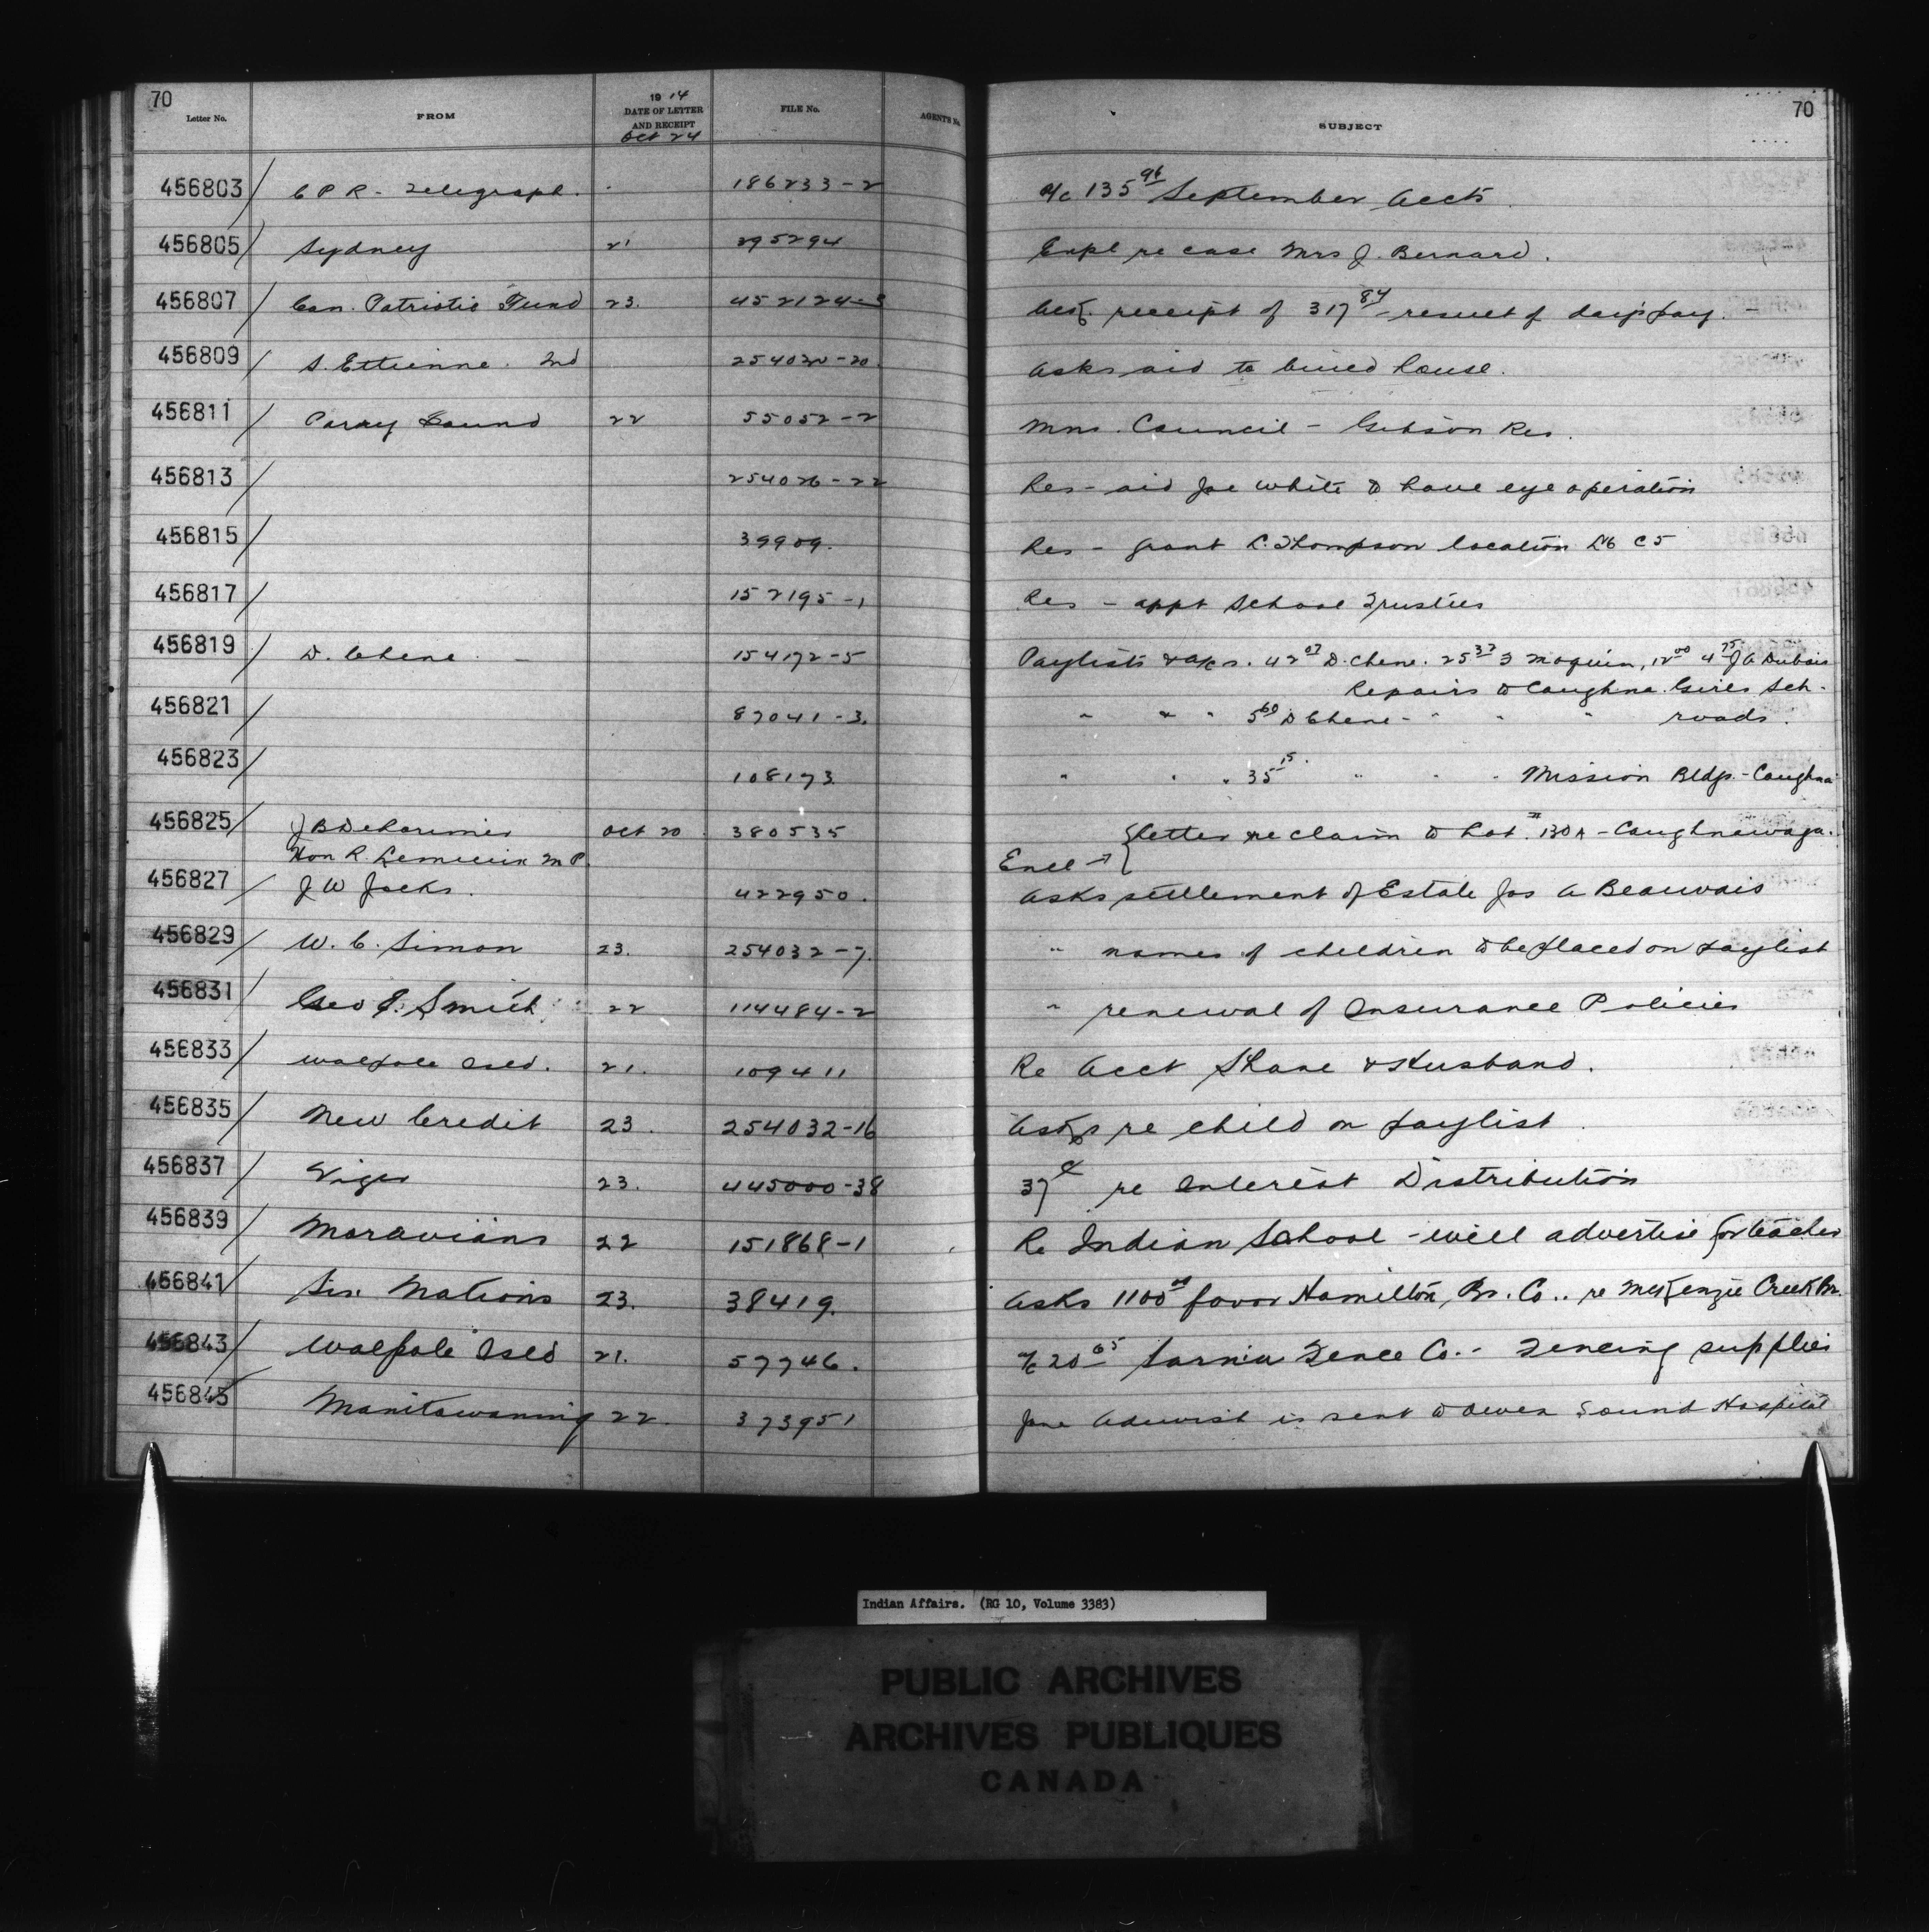 70
Letter No. FROM 1914 DATE OF LETTER AND RECEIPT Oct 24 FILE No. AGENTS No. SUBJECT 70
456803 C P R - Telegraph. 186233-2 a/c 135 96 September Accts.
456805 Sydney 21 295294 Expl re case Mrs J. Bernard.
456807 Can. Patriotic Fund 23. 452124-3 Ackg. receipt of 317 84 - result of day's pay. -
456809 S. Ettienne. 2nd 254020-20. Asks aid to build house.
456811 Parry Sound 22 55052-2 Mns. Council - Gibson Res.
456813 254026-22 Res - aid Joe White to have eye operation
456815 39909. Res - grant L. Thompson location L16 C5
456817 152195-1 Res - appt School Trustees
456819 D. Chene - 154172-5 Paylists & a/cs. 42 07 D. Chene. 25 37 J Moquin, 12 00 4 75 J A Dubois
Repairs to Caughna. Girls Sch.
456821 87041-3. " " " 5 60 D Chene - " " " roads.
456823 108173 " " " 35 15 " " " Mission Bldgs - Caughna
456825 J B Delorimier Oct 20 380535 Letter re claim to Lot 130A - Caughnawaga.
Hon R. Lemieux M P. Encl →
456827 J W Jacks. 422950. Asks settlement of Estate Jos A Beauvais
456829 W. C. Simon 23. 254032-7. " names of children to be placed on paylist
456831 Geo J. Smith 22 114484-2 " renewal of Insurance Policies
456833 Walpole Isld. 21. 109411 Re Acct Shane & Husband.
456835 New Credit 23. 254032-16 Asks re child on paylist.
456837 Viger 23. 445000-38 37 re Interest Distribution
456839 Moravians 22 151868-1 Re Indian School - will advertise for teacher
456841 Six Nations 23. 38419. Asks 1100 00 favor Hamilton Br. Co. re McKenzie Creek Br.
456843 Walpole Isld 21. 57746. a/c 20 65 Sarnia Fence Co. - Fencing supplies
456845 Manitowaning 22. 373951 Jane is sent to Owen Sound Hospital
Indian Affairs. (RG 10, Volume 3383)
PUBLIC ARCHIVES
ARCHIVES PUBLIQUES
CANADA